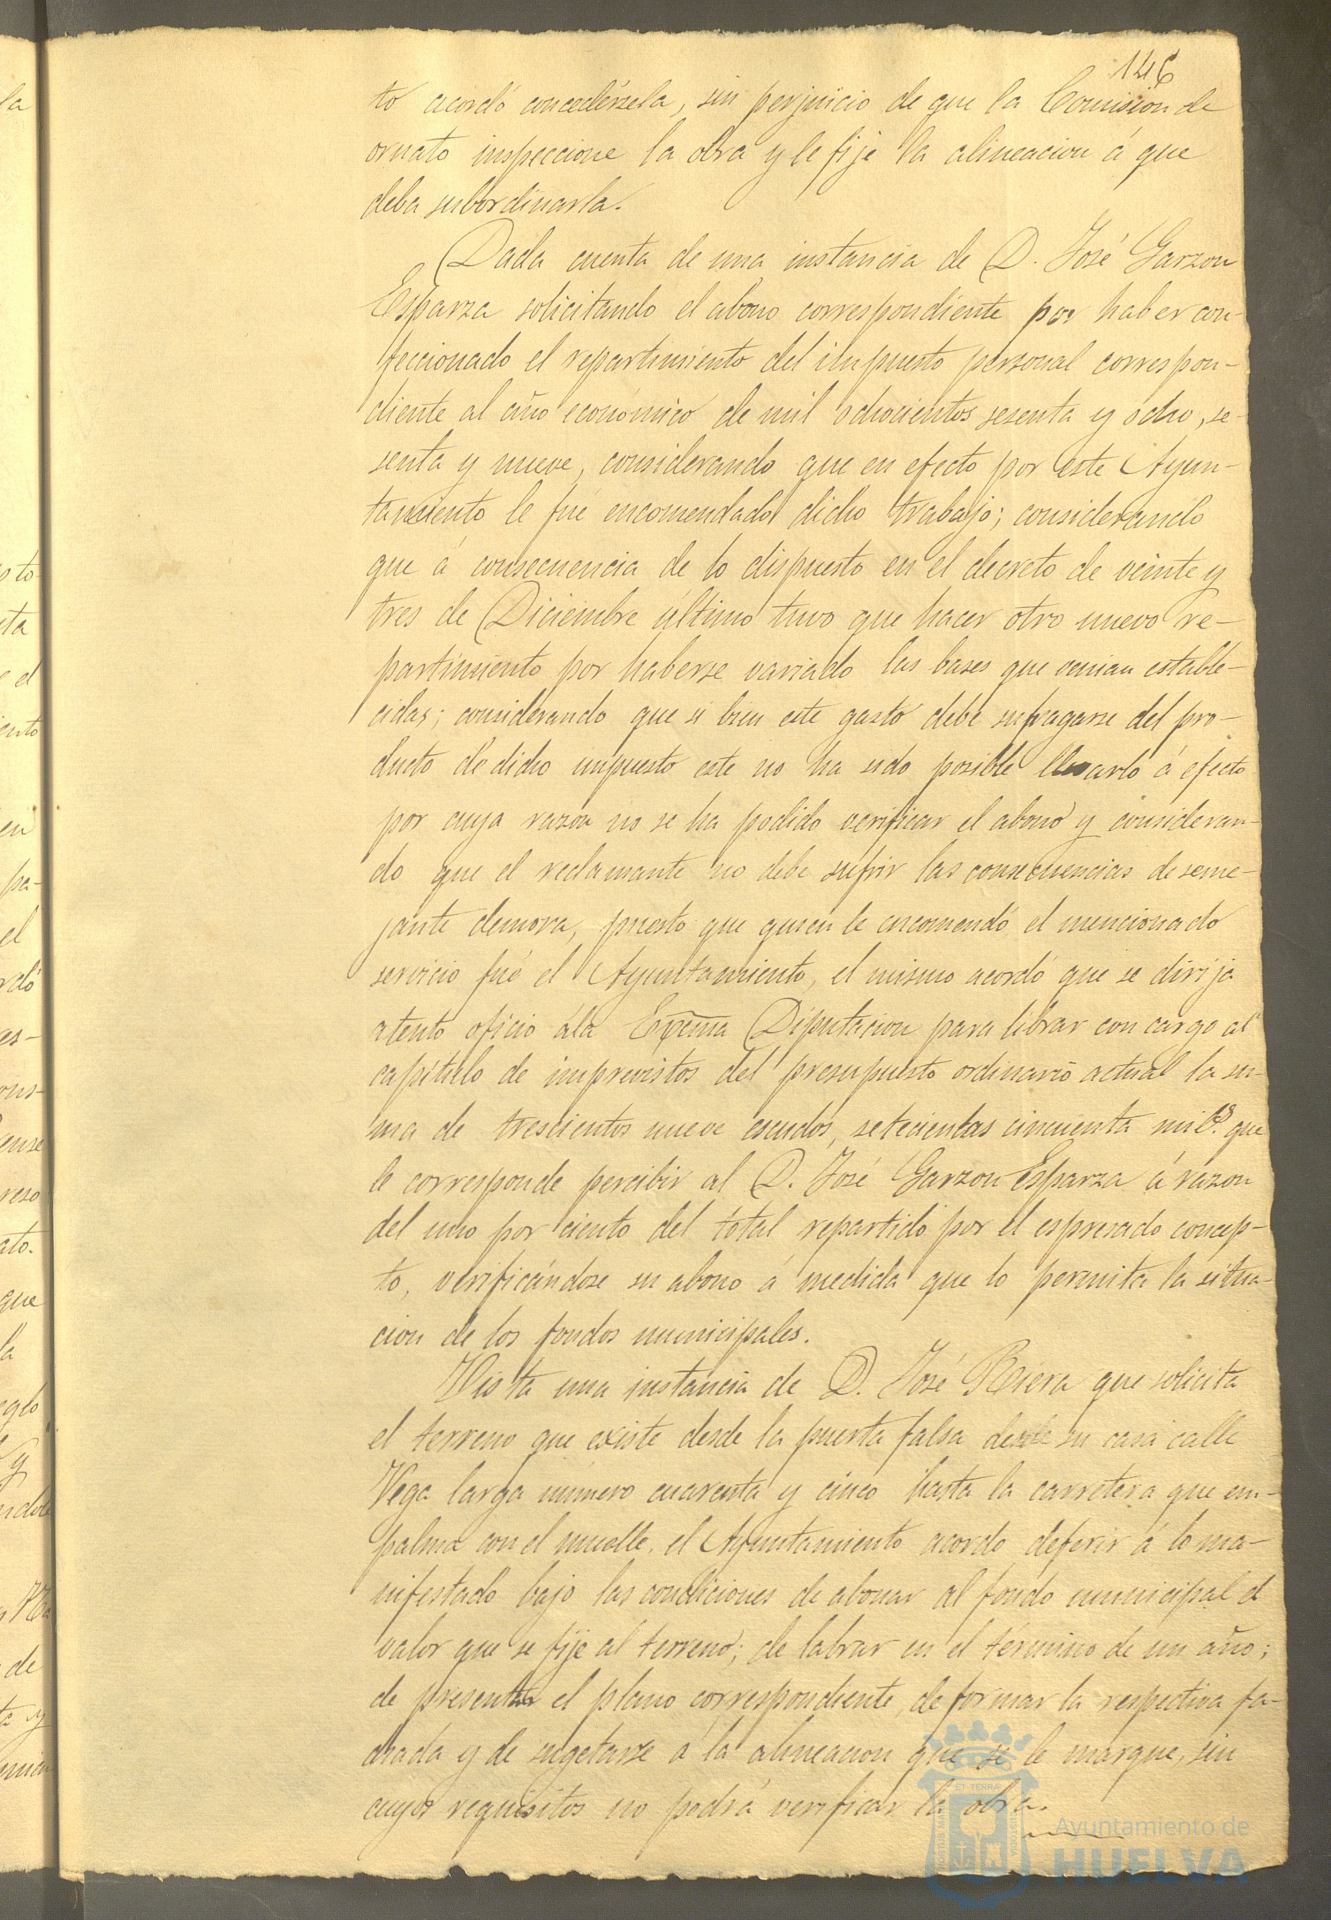 146
to acordó concedérsela, sin perjuicio de que la Comision de
ornato inspeccione la obra y le fije la alineacion á que
deba subordinarla.
Dada cuenta de una instancia de D. José Garzon
Esparza solicitando el abono correspondiente por haber con-
feccionado el repartimiento del impuesto personal correspon-
diente al año económico de mil ochocientos sesenta y ocho, se-
senta y nueve, considerando que en efecto por este Ayun-
tamiento le fué encomendado dicho trabajo; considerando
que á consecuencia de lo dispuesto en el decreto de veinte y
tres de Diciembre último tuvo que hacer otro nuevo re-
partimiento por haberse variado las bases que venian estable-
cidas; considerando que si bien este gasto debe sufragarse del pro-
ducto de dicho impuesto este no ha sido posible llevarlo á efecto
por cuya razon no se ha podido verificar el abono y consideran-
do que el reclamante no debe sufrir las consecuencias de seme-
jante demora, puesto que quien le encomendó el mencionado
servicio fué el Ayuntamiento, el mismo acordó que se dirija
atento oficio á la Excma Diputacion para librar con cargo al
capítulo de imprevistos del presupuesto ordinario actual la su-
ma de trescientos nueve escudos, setecientas cincuenta mils. que
le corresponde percibir al D. José Garzon Esparza á razon
del uno por ciento del total repartido por el espresado concep-
to, verificándose su abono á medida que lo permita la situa-
cion de los fondos municipales.
Vista una instancia de D. José Riera que solicita
el terreno que existe desde la puerta falsa desde su casa calle
Vega larga número cuarenta y cinco hasta la carretera que em-
palma con el muelle, el Ayuntamiento acordo deferir á lo ma-
nifestado bajo las condiciones de abonar al fondo municipal el
valor que se fije al terreno; de labrar en el término de un año;
de presentar el plano correspondiente, de formar la respectiva fa-
chada y de sugetarse a la alineacion que se le marque, sin
cuyos requisitos no podrá verificar la obra.
ET TERRAE
Ayuntamiento de
HUELVA